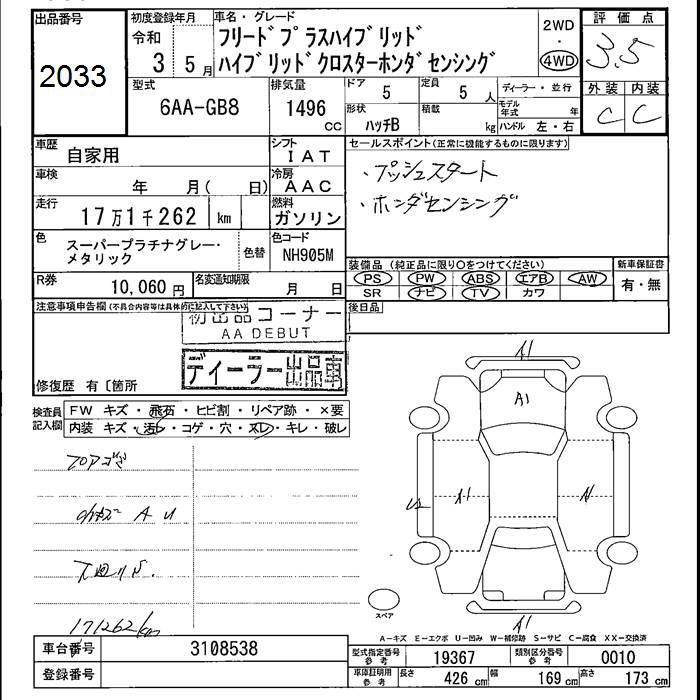 出品番号
2033
初度登録年月
令和
3 5月
車名・グレード
フリードプラスハイブリッド
ハイブリッドクロスターホンダセンシング
2WD
・
4WD
評価点
3.5
外装 内装
C C
型式
6AA-GB8
排気量
1496
cc
ドア
5
定員
5 人
形状
ハッチB
積載
kg
ディーラー・並行
モデル年式 年
ハンドル 左・右
車歴
自家用
シフト
IAT
車検
年 月( 日)
冷房
AAC
走行
17万1千262 km
燃料
ガソリン
色
スーパープラチナグレー・
メタリック
色替
色コード
NH905M
R券
10,060円
名変通知期限
月 日
セールスポイント(正常に機能するものに限ります)
・プッシュスタート
・ホンダセンシング
装備品(純正品に限り○をつけてください)
PS PW ABS エアB AW
SR ナビ TV カワ
新車保証書
有・無
後日品
注意事項申告欄(不具合内容等は具体的に記入して下さい)
初出品コーナー
AA DEBUT
ディーラー出品車
修復歴 有〔箇所
検査員
記入欄
FW キズ・飛石・ヒビ割・リペア跡・×要
内装 キズ・汚レ・コゲ・穴・スレ・キレ・破レ
A U
171262km
A1
A1
A1
A1
スペア
A-キズ E-エクボ U-凹み W-補修跡 S-サビ C-腐食 XX-交換済
車台番号
3108538
登録番号
型式指定番号
参考
19367
類別区分番号
参考
0010
車庫証明用
参考
長さ
426 cm
幅
169 cm
高さ
173 cm